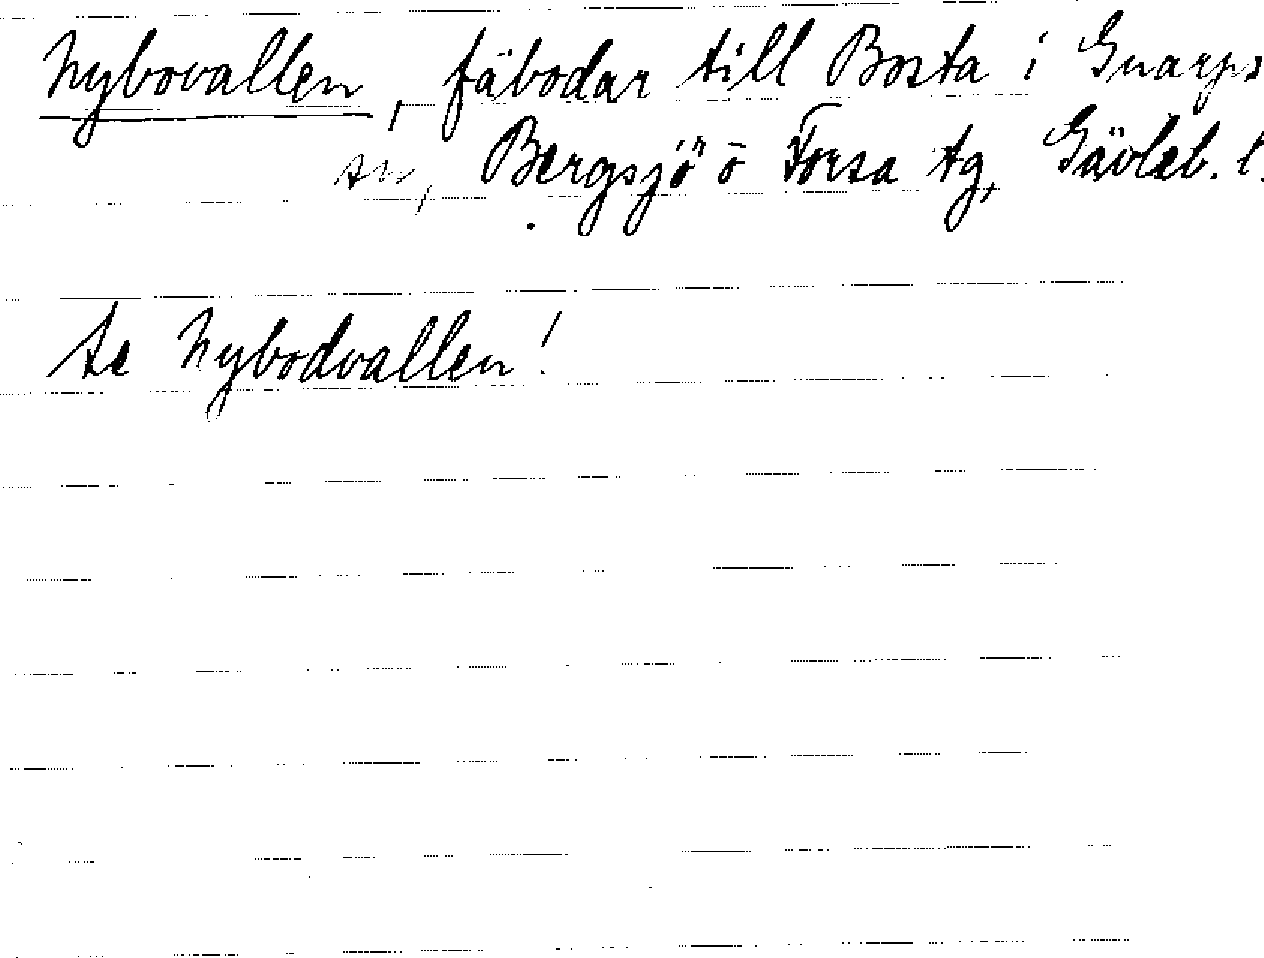 Nybovallen, fäbodar till Bosta i Gnarps
sn, Bergsjö o Forsa tg, Gävleb. l.
Se Nybodvallen!